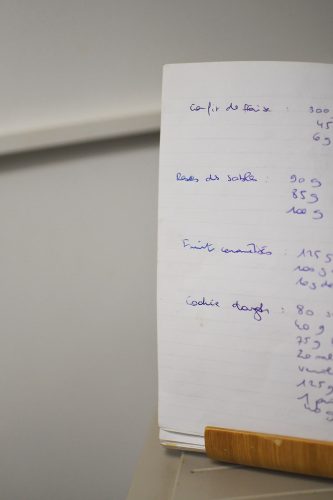 confit de fraise : 300
45
6g
Roses des sables : 90 g
85g
100 g
Fruit caramélisés : 125 g
100 g
10g de
Cookie dough : 80
40 g
75 g
20 ml
125 g
1